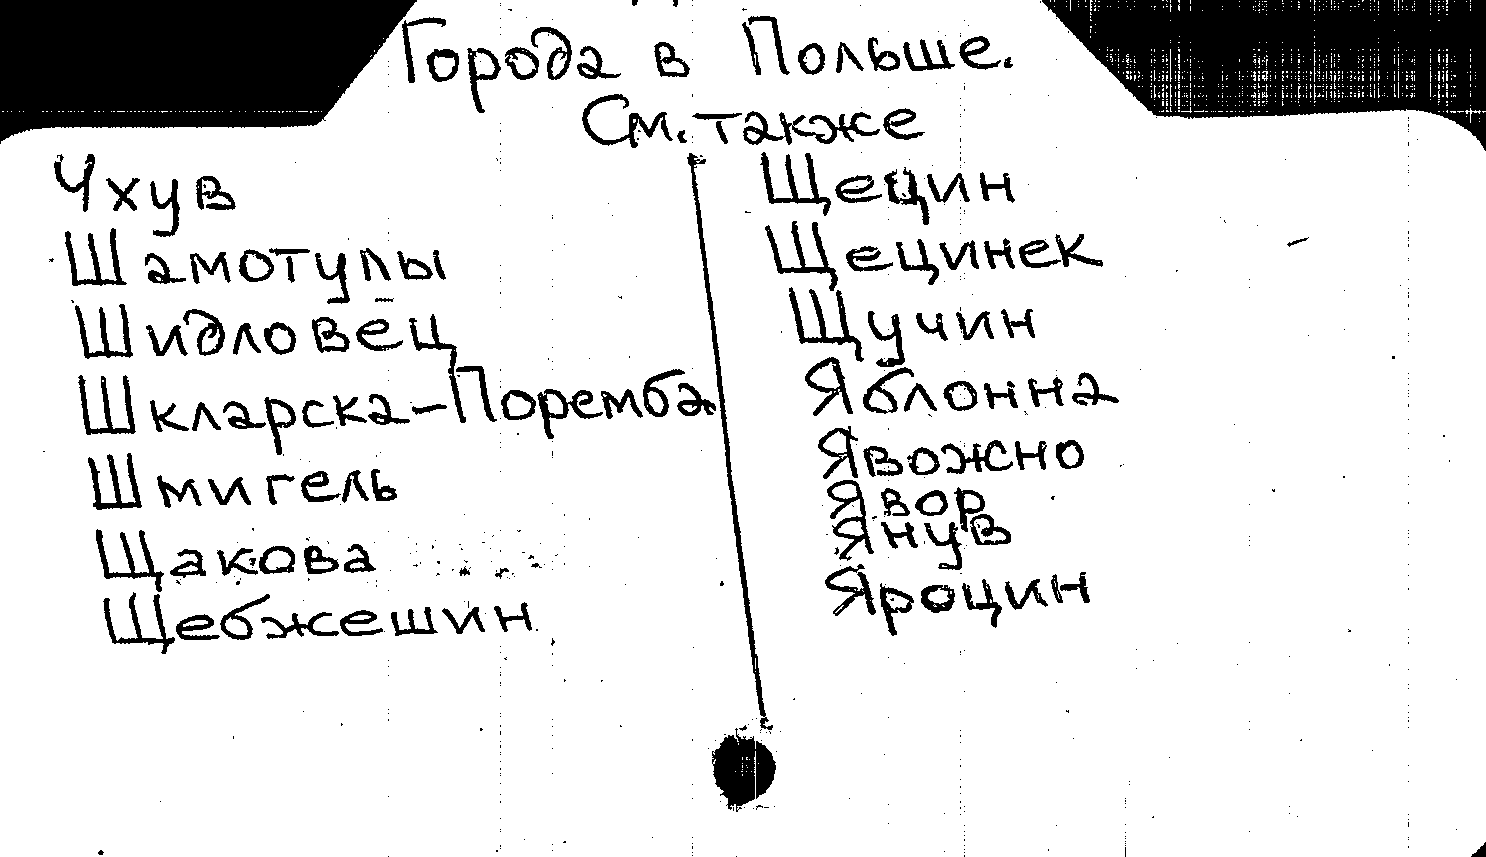 Города в Польше.
См. также
Чхув
Шамотулы
Шидловец
Шкларска-Поремба
Шмигель
Щакова
Щебжешин
Щецин
Щецинек
Щучин
Яблонна
Явожно
Явор
Янув
Яроцин